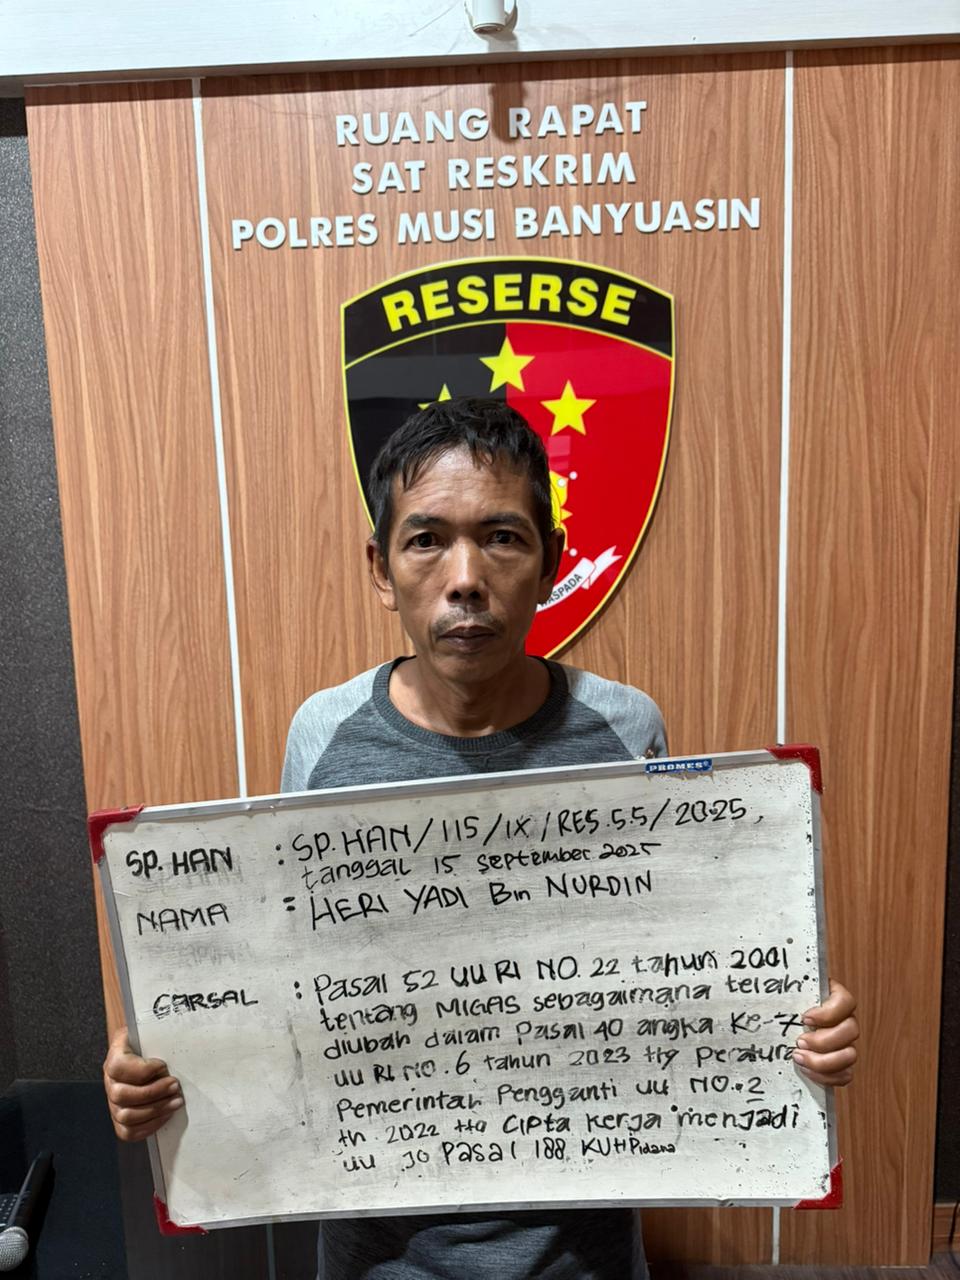 RUANG RAPAT
SAT RESKRIM
POLRES MUSI BANYUASIN
RESERSE
WASPADA
PROMES
SP. HAN : SP. HAN/115/IX/RES.5.5/2025,
tanggal 15 september 2025
NAMA : HERI YADI Bin NURDIN
GARSAL : Pasal 52 UU RI NO. 22 tahun 2001
tentang MIGAS sebagaimana telah
diubah dalam Pasal 40 angka Ke-7
UU RI NO. 6 tahun 2023 ttg Peratura
Pemerintah Pengganti UU NO. 2
th 2022 ttg Cipta Kerja menjadi
UU JO Pasal 188 KUHPidana